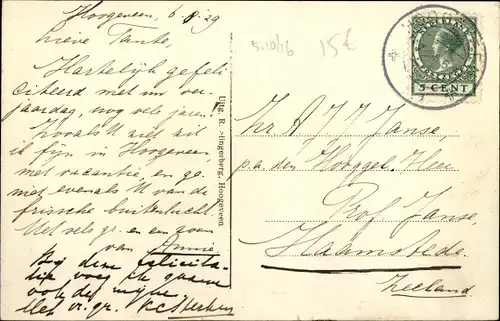 Hoogeveen, 6 8 '29
Lieve Tante,
Hartelijk gefeli
citeerd met uw ver-
jaardag, nog vele jaren!
Zooals U ziet zit
ik fijn in Hoogeveen,
met vacantie, en ge-
niet evenals U van de
frissche buitenlucht.
Met vele gr. en een zoen
van Annie
Bij deze felicita-
tie voeg ik gaarne
ook de mijne
Met vr. gr.
Uitg. R. Slingerberg, Hoogeveen
5-10/16 15€
5 CENT
A J J Janse,
p.a. den Hooggel. Heer
Prof. Janse,
Haamstede.
Zeeland.